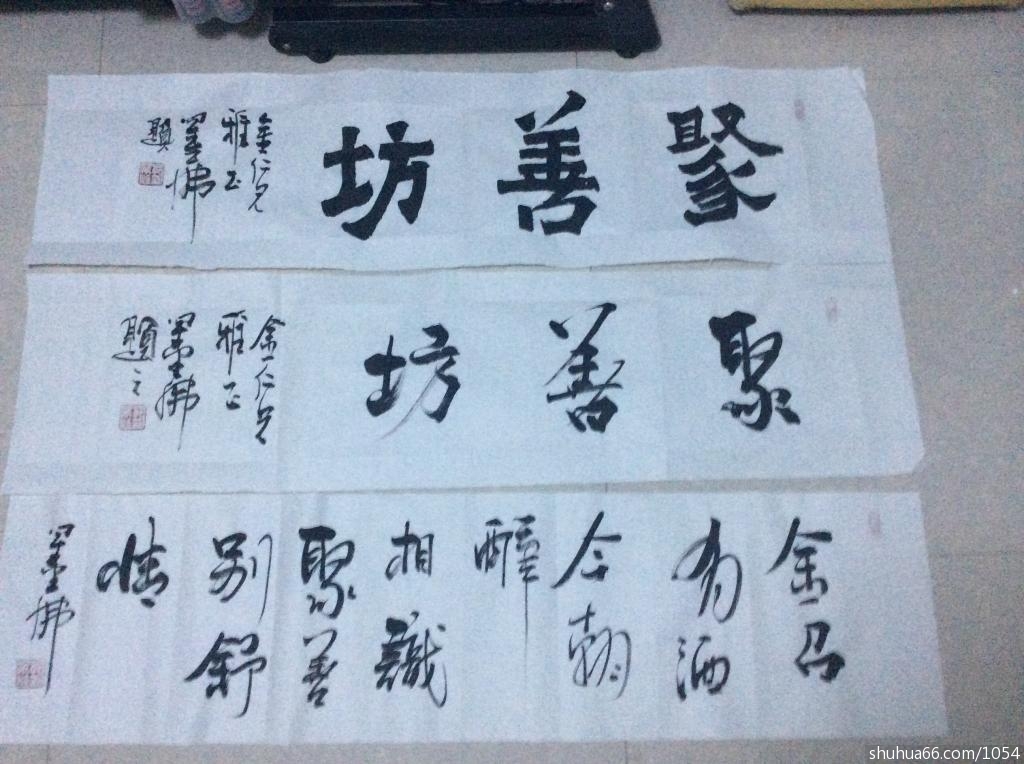 聚善坊
金仁兄
雅正
墨佛
題
聚善坊
仁兄
雅正
墨佛
題之
金召
有酒
今朝
醉
相識
聚善
別舒
情
墨佛
shuhua66.com/1054